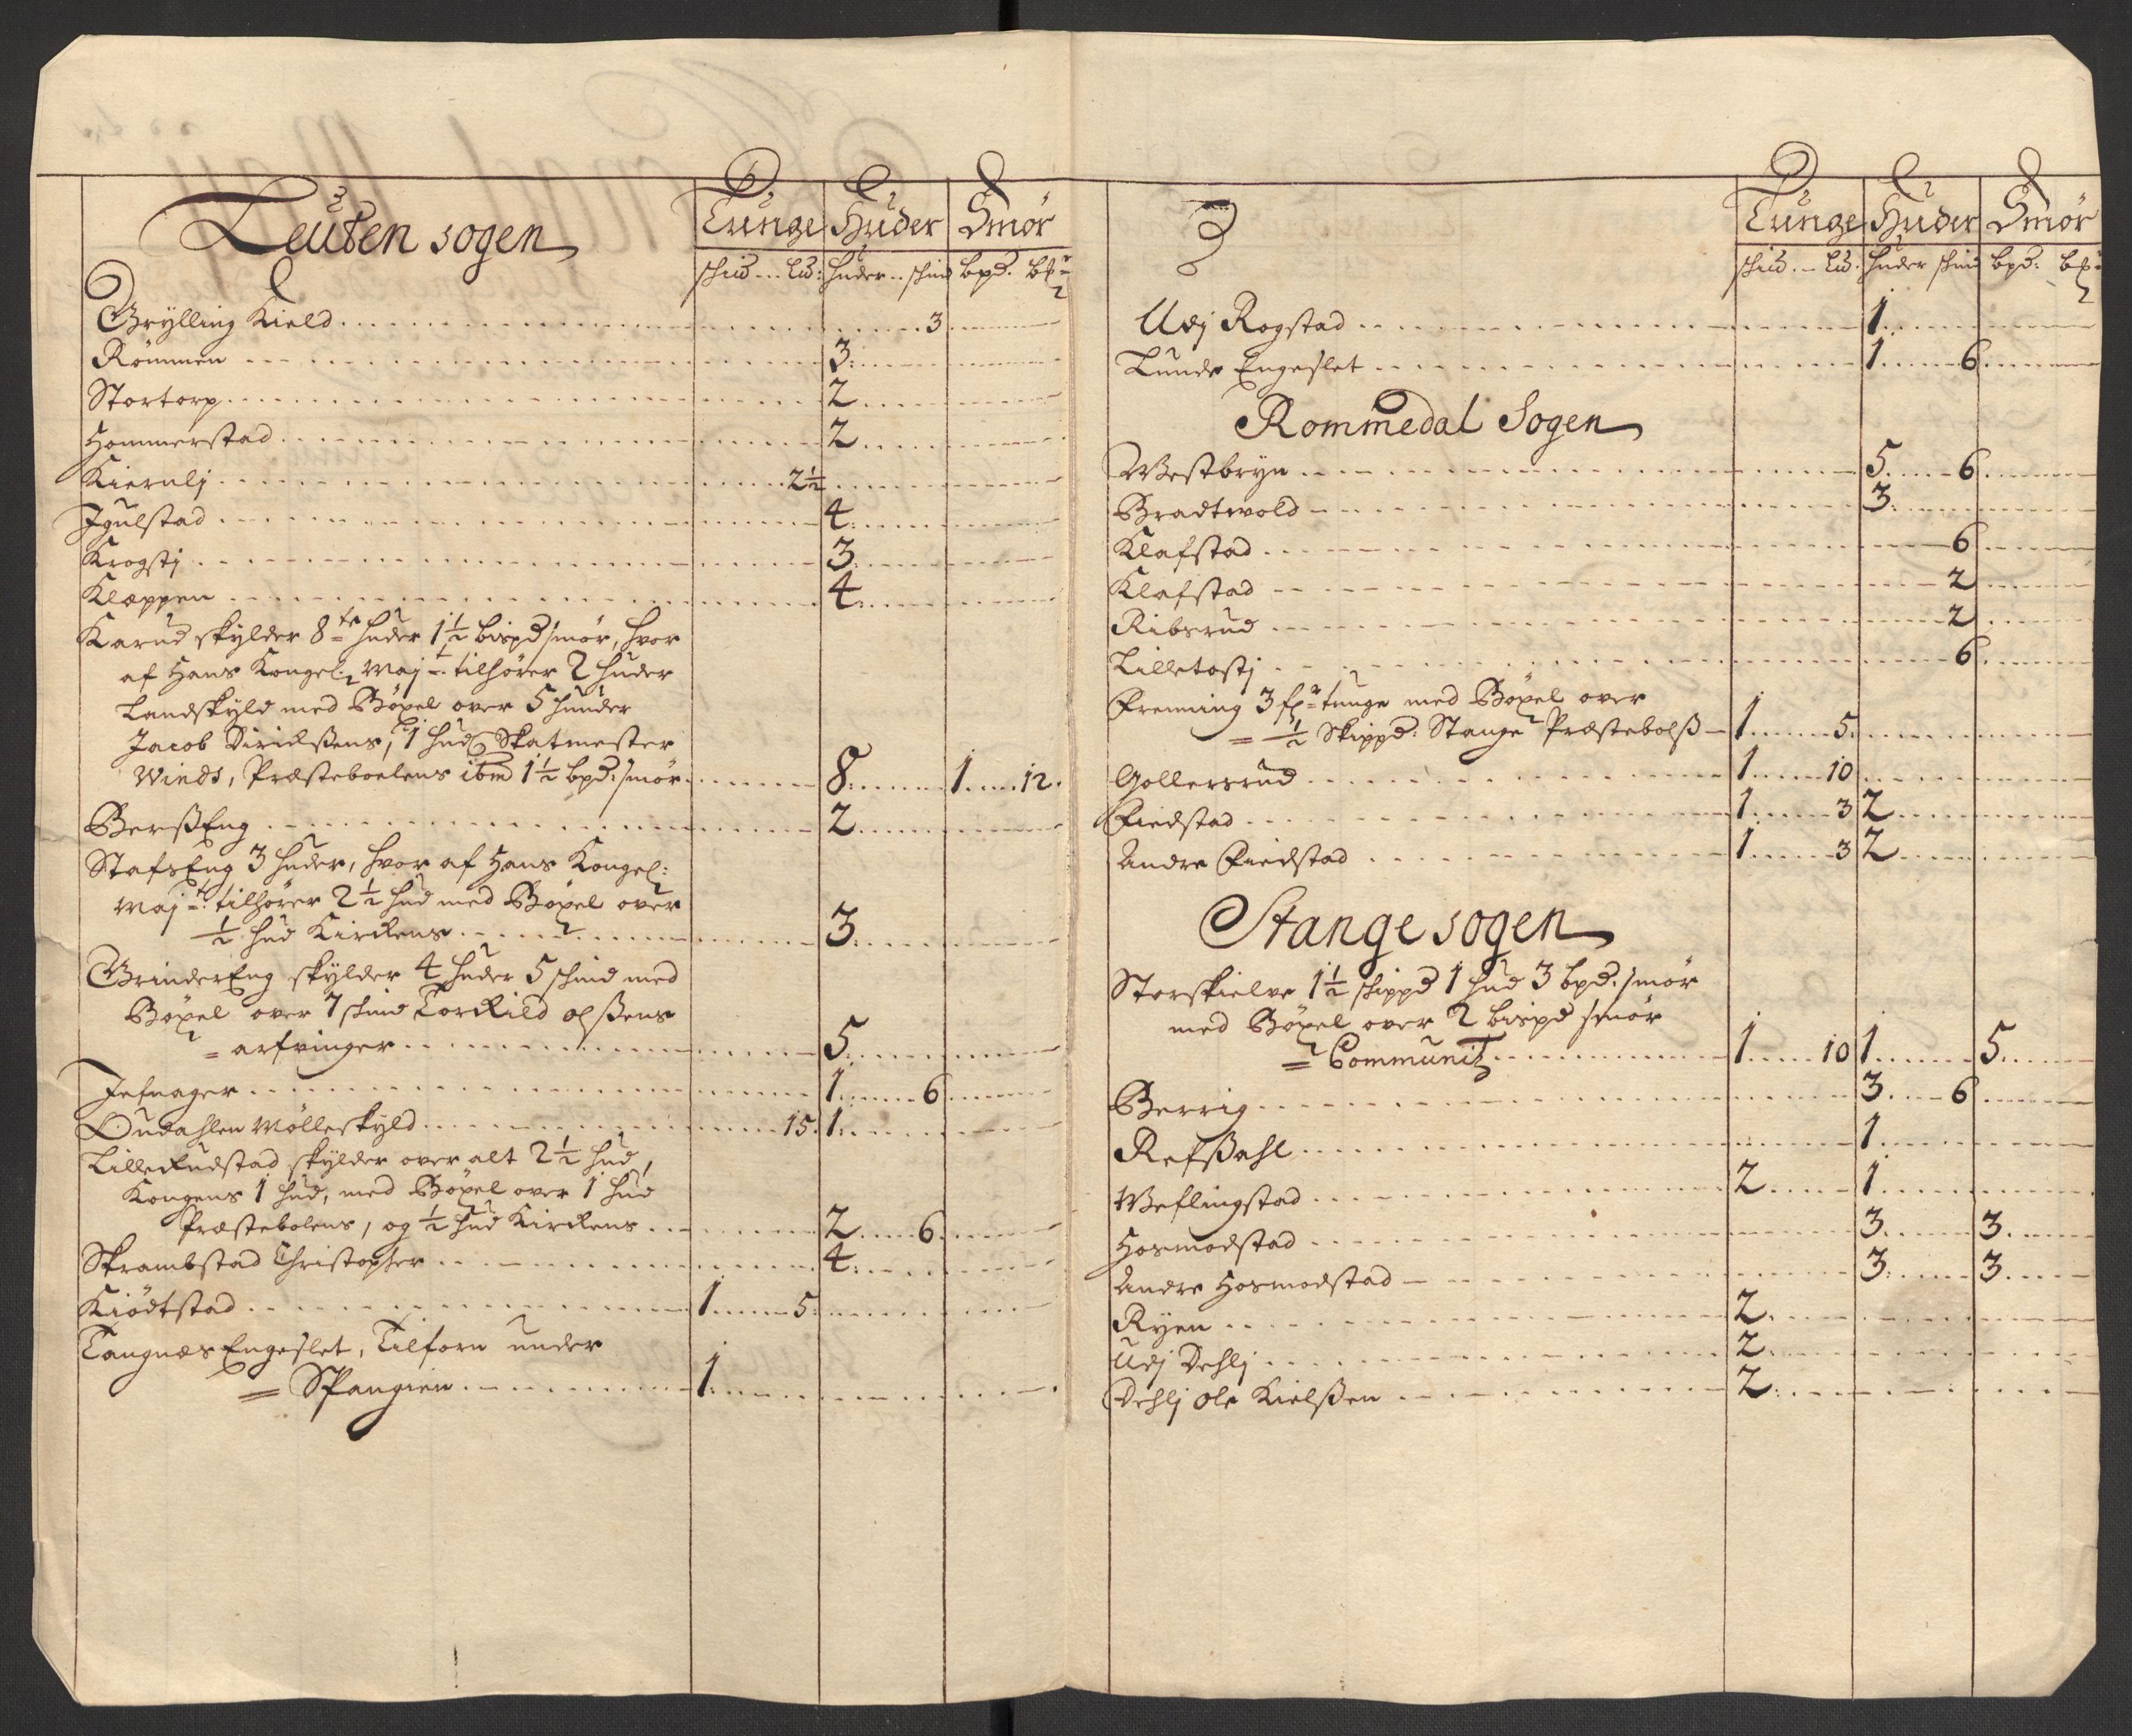 Leuten sogen
Tunge Huder Smør
schid ... Lid: Huder .. schind bpd. bf
Grylling Kield 3
Römmen 3
Stortorp 2
Hommerstad 2
Kiernlj 2½
Igulstad 4
Krogstj 3
Klæppen 4
Karud skylder 8te huder 1½ bispd smør, hvor
af Hans Kongel: Maj:t tilhører 2 huder
Landskyld med Böxel over 5 hunder
Jacob Dirichßens, 1 hud Skatmester
Winds, Præsteboelens ibm 1½ bpd: smør 8 1 12
BerßEng 2
StafsEng 3 huder, hvor af Hans Kongel:
Maj:t tilhører 2½ hud med Böxel over
½ hud Kirckens 3
GrinderEng skylder 4 huder 5 schind med
Böxel over 7 schind Torkild olßens
= arfvinger 5
Jefnager 1 6
Oudahlen Mölleskyld 15 1
LilleKudstad skylder over alt 2½ hud,
Kongens 1 hud, med Böxel over 1 hud
Præstebolens, og ½ hud Kirckens 2 6
Skrambstad Christopher 4
Kiödtstad 1 5
Tangnæs Engeslet, Tilforn under
= Spangien 1
Tunge Huder Smør
schid .. Lid. huder schind bpd: bf
Udj Rogstad 1
Lunde Engeslet 1 6
Rommedal Sogen
Westbryn 5 6
Bradtwold 3
Klafstad 6
Klafstad 2
Ribsrud 2
Lilletostj 6
Frenning 3 fr tunge med Böxel over
= ½ Skippd: Stange Præstebolß 1 5
Gollersrud 1 10
Fiedstad 1 3 2
Andre Fiedstad 1 3 2
Stange sogen
Storskielve 1½ schippd 1 hud 3 bpd. smør
med Böxel over 2 bispd smør
= Communitz 1 10 1 5
Berrig 3 6
Refßahl 1
Weflingstad 2 1
Hosmodstad 3 3
Andre Hosmodstad 3 3
Ryen 2
Udj Dehlj 2
Dehlj Ole Kielßen 2